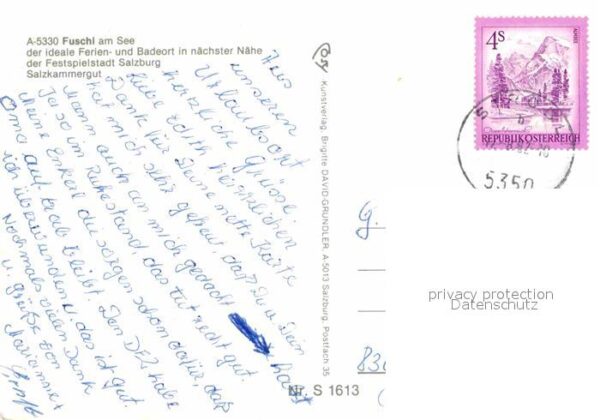 A-5330 Fuschl am See
der ideale Ferien- und Badeort in nächster Nähe
der Festspielstadt Salzburg
Salzkammergut
Aus
unserem
Urlaubsort
herzliche Grüsse.
Liebe Edith herzlichen
Dank für Deine nette Karte
hat mich sehr gefreut, daß Du u Dein
Mann auch an mich gedacht habt
Ja so im Ruhestand, das tut recht gut.
Meine Enkerl die sorgen schon dafür, daß
Oma auf trab bleibt. Den habe
ich überwunden u das ist gut
Nochmals vielen Dank
u. grüße von
Marianne
Kunstverlag Brigitte DAVID-GRÜNDLER, A-5013 Salzburg, Postfach 35
Nr. S 1613
4S
REPUBLIK ÖSTERREICH
5350
G.
830
privacy protection
Datenschutz